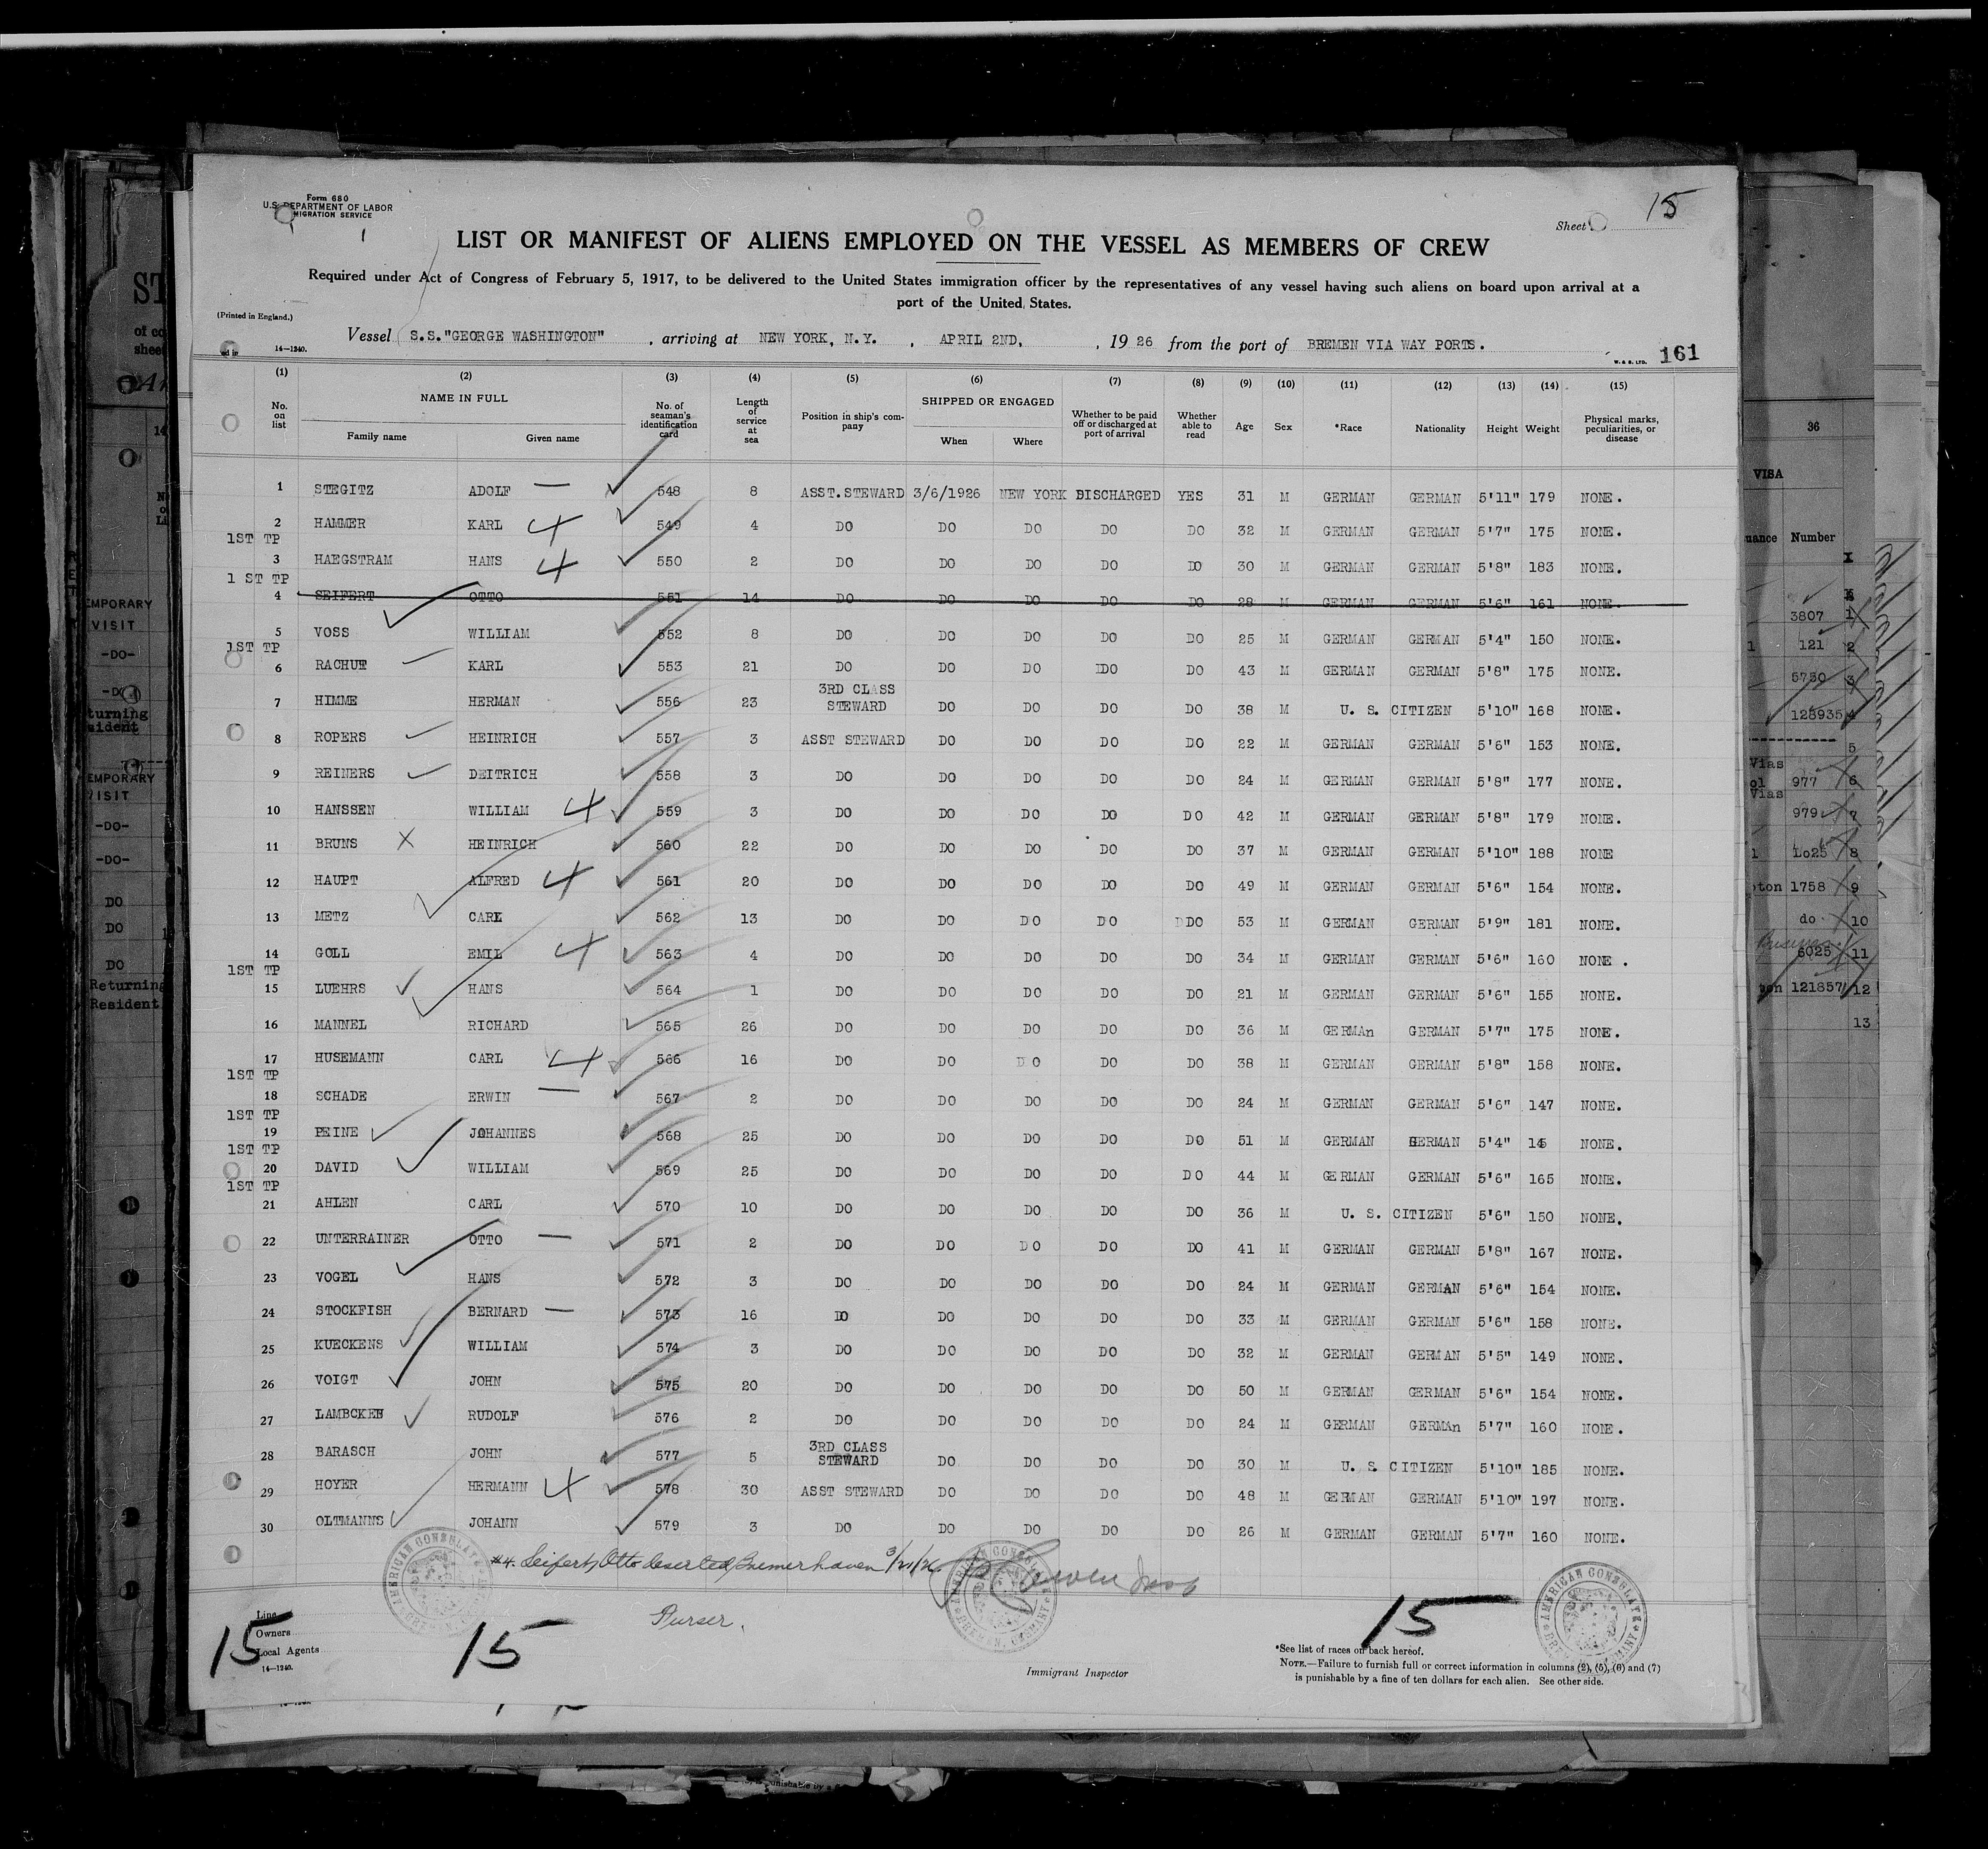 Form 680
U.S. DEPARTMENT OF LABOR
MIGRATION SERVICE
Sheet 15
LIST OR MANIFEST OF ALIENS EMPLOYED ON THE VESSEL AS MEMBERS OF CREW
Required under Act of Congress of February 5, 1917, to be delivered to the United States immigration officer by the representatives of any vessel having such aliens on board upon arrival at a
port of the United States.
(Printed in England.)
Vessel S.S."GEORGE WASHINGTON" , arriving at NEW YORK, N.Y. , APRIL 2ND, , 19 26 from the port of BREMEN VIA WAY PORTS.
14—1240. W. & S. LTD. 161
(1) (2) (3) (4) (5) (6) (7) (8) (9) (10) (11) (12) (13) (14) (15)
No. on list NAME IN FULL Family name Given name No. of seaman's identification card Length of service at sea Position in ship's company SHIPPED OR ENGAGED When Where Whether to be paid off or discharged at port of arrival Whether able to read Age Sex *Race Nationality Height Weight Physical marks, peculiarities, or disease
1 STEGITZ ADOLF — 548 8 ASST.STEWARD 3/6/1926 NEW YORK DISCHARGED YES 31 M GERMAN GERMAN 5'11" 179 NONE.
2 HAMMER KARL 4 549 4 DO DO DO DO DO 32 M GERMAN GERMAN 5'7" 175 NONE.
1ST TP
3 HAEGSTRAM HANS 4 550 2 DO DO DO DO DO 30 M GERMAN GERMAN 5'8" 183 NONE.
1 ST TP
4 SEIFERT OTTO 551 14 DO DO DO DO DO 28 M GERMAN GERMAN 5'6" 161 NONE.
5 VOSS WILLIAM 552 8 DO DO DO DO DO 25 M GERMAN GERMAN 5'4" 150 NONE.
1ST TP
6 RACHUT KARL 553 21 DO DO DO DO DO 43 M GERMAN GERMAN 5'8" 175 NONE.
7 HIMME HERMAN 556 23 3RD CLASS STEWARD DO DO DO DO 38 M U. S. CITIZEN 5'10" 168 NONE.
8 ROPERS HEINRICH 557 3 ASST STEWARD DO DO DO DO 22 M GERMAN GERMAN 5'6" 153 NONE.
9 REINERS DEITRICH 558 3 DO DO DO DO DO 24 M GERMAN GERMAN 5'8" 177 NONE.
10 HANSSEN WILLIAM 4 559 3 DO DO DO DO DO 42 M GERMAN GERMAN 5'8" 179 NONE.
11 BRUNS X HEINRICH 560 22 DO DO DO DO DO 37 M GERMAN GERMAN 5'10" 188 NONE
12 HAUPT ALFRED 4 561 20 DO DO DO DO DO 49 M GERMAN GERMAN 5'6" 154 NONE.
13 METZ CARL 562 13 DO DO DO DO DO 53 M GERMAN GERMAN 5'9" 181 NONE.
14 GOLL EMIL 4 563 4 DO DO DO DO DO 34 M GERMAN GERMAN 5'6" 160 NONE .
1ST TP
15 LUEHRS HANS 564 1 DO DO DO DO DO 21 M GERMAN GERMAN 5'6" 155 NONE.
16 MANNEL RICHARD 565 26 DO DO DO DO DO 36 M GERMAn GERMAN 5'7" 175 NONE.
17 HUSEMANN CARL 4 566 16 DO DO DO DO DO 38 M GERMAN GERMAN 5'8" 158 NONE.
1ST TP
18 SCHADE ERWIN — 567 2 DO DO DO DO DO 24 M GERMAN GERMAN 5'6" 147 NONE.
1ST TP
19 PEINE JOHANNES 568 25 DO DO DO DO DO 51 M GERMAN GERMAN 5'4" NONE.
1ST TP
20 DAVID WILLIAM 569 25 DO DO DO DO DO 44 M GERMAN GERMAN 5'6" 165 NONE.
1ST TP
21 AHLEN CARL 570 10 DO DO DO DO DO 36 M U. S. CITIZEN 5'6" 150 NONE.
22 UNTERRAINER OTTO — 571 2 DO DO DO DO DO 41 M GERMAN GERMAN 5'8" 167 NONE.
23 VOGEL HANS 572 3 DO DO DO DO DO 24 M GERMAN GERMAN 5'6" 154 NONE.
24 STOCKFISH BERNARD — 573 16 DO DO DO DO DO 33 M GERMAN GERMAN 5'6" 158 NONE.
25 KUECKENS WILLIAM 574 3 DO DO DO DO DO 32 M GERMAN GERMAN 5'5" 149 NONE.
26 VOIGT JOHN 575 20 DO DO DO DO DO 50 M GERMAN GERMAN 5'6" 154 NONE.
27 LAMBCKEN RUDOLF 576 2 DO DO DO DO DO 24 M GERMAN GERMAn 5'7" 160 NONE.
28 BARASCH JOHN 577 5 3RD CLASS STEWARD DO DO DO DO 30 M U. S. CITIZEN 5'10" 185 NONE.
29 HOYER HERMANN 4 578 30 ASST STEWARD DO DO DO DO 48 M GERMAN GERMAN 5'10" 197 NONE.
30 OLTMANNS JOHANN 579 3 DO DO DO DO DO 26 M GERMAN GERMAN 5'7" 160 NONE.
#4. Seifert, Otto deserted Bremerhaven 3/21/26
AMERICAN CONSULATE BREMEN, GERMANY
Purser.
15 15 15
Line
Owners
Local Agents
14—1240.
Immigrant Inspector
*See list of races on back hereof.
NOTE.—Failure to furnish full or correct information in columns (2), (5), (6) and (7)
is punishable by a fine of ten dollars for each alien. See other side.
36
VISA
Number
3807
121
5750
128935
977
979
1758
do
6025
121857
TEMPORARY
VISIT
-DO-
-DO-
-DO-
DO
DO
DO
Returning
Resident